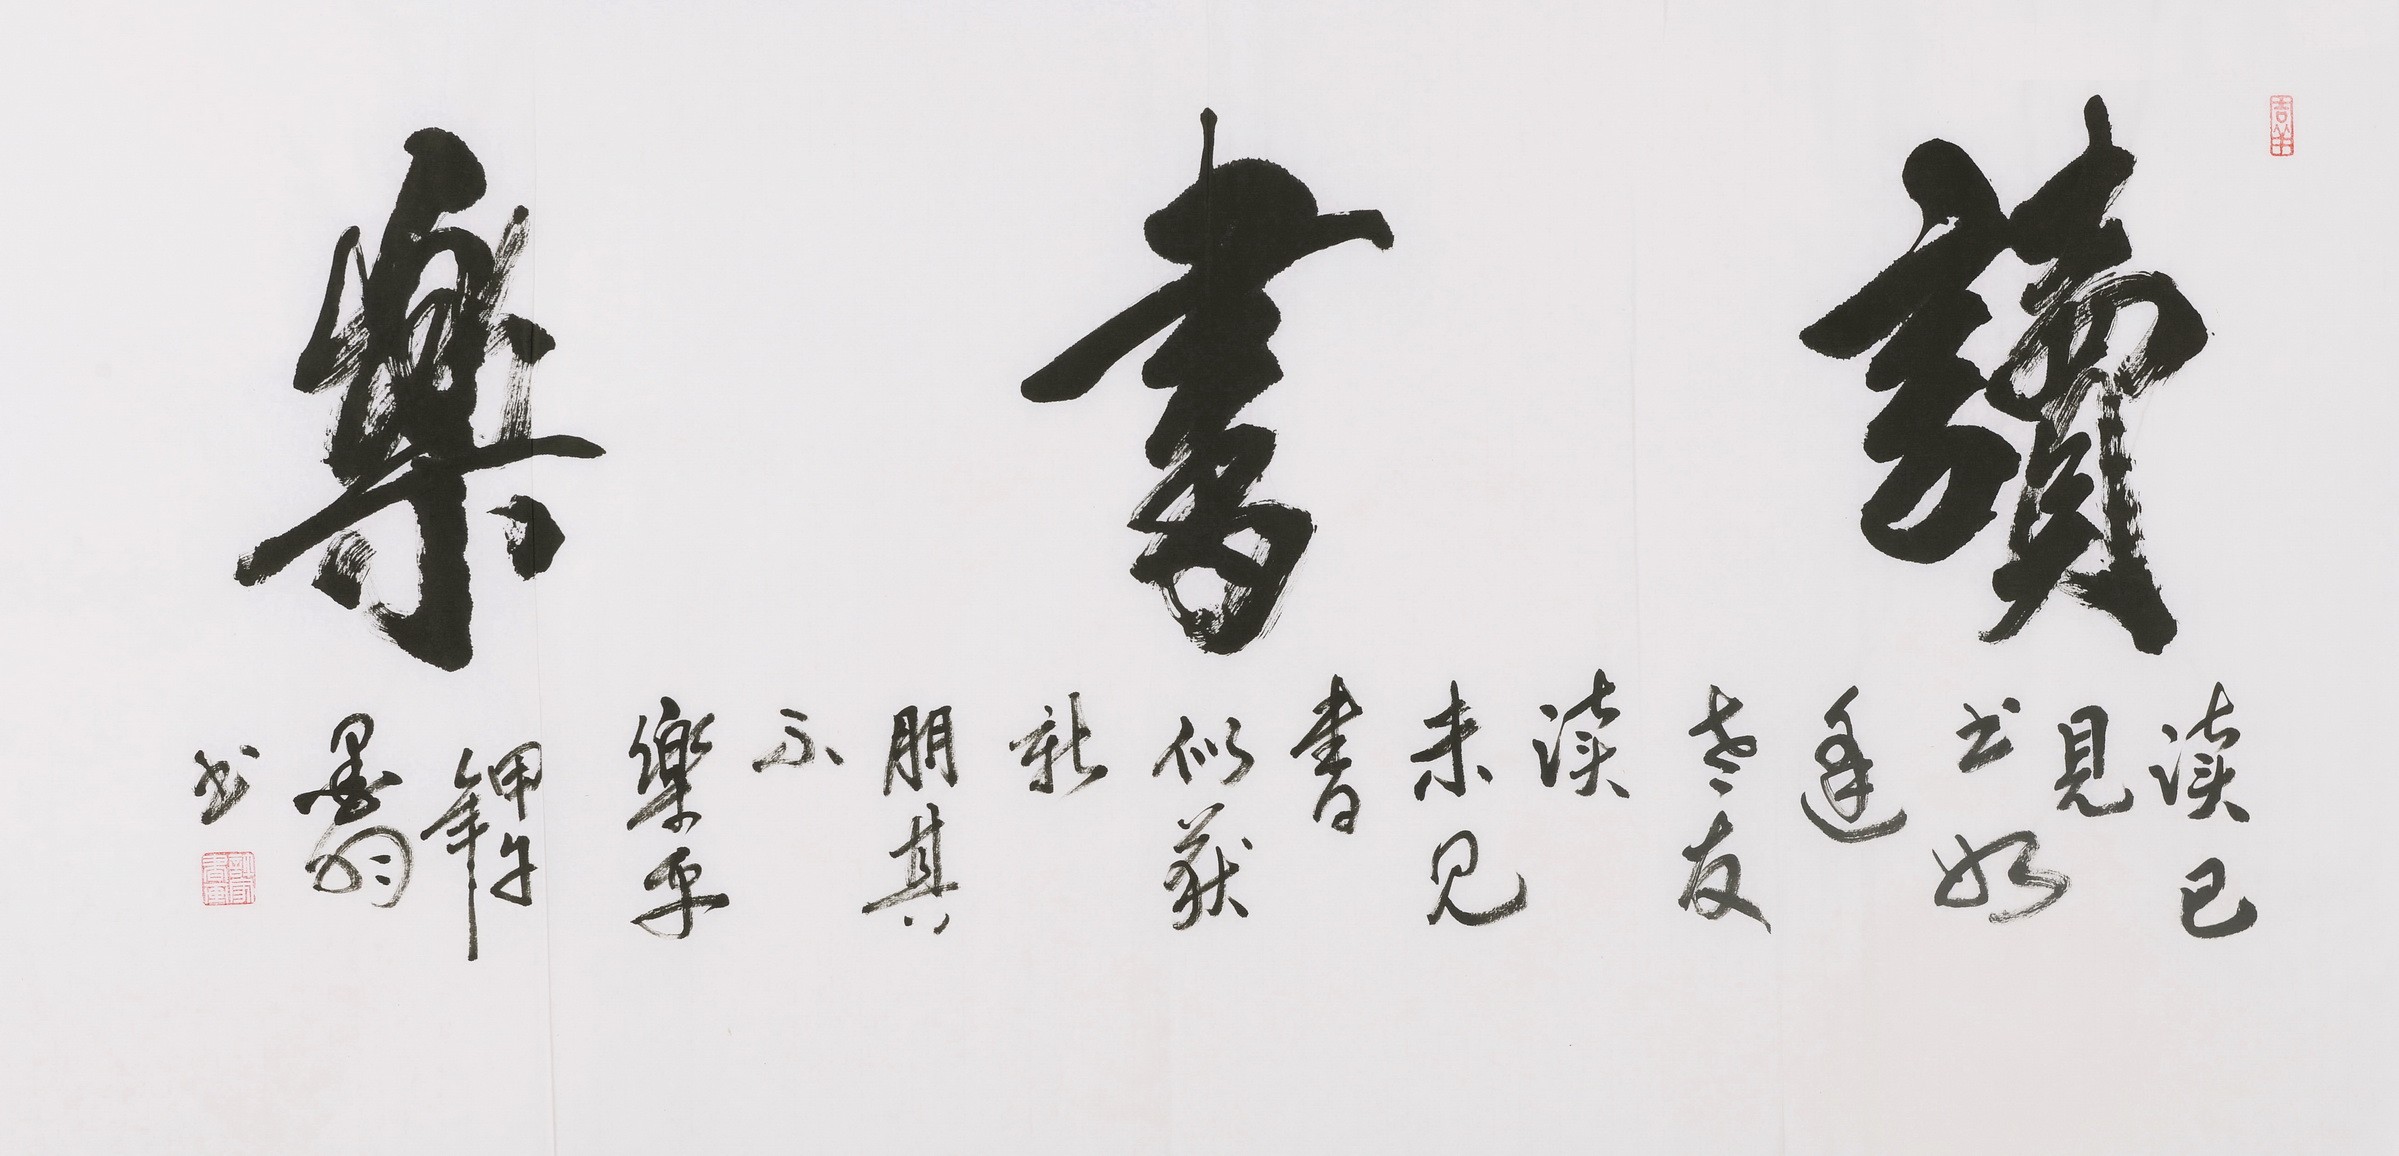 讀書樂
读已
見
书如
逢
老友
读
未见
書
似获
新
朋其
不
樂乎
甲午
年
墨
书